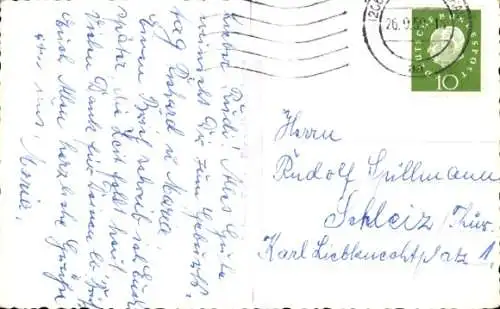 Lieber Rudi! Alles Gute
wünscht Dir zum Geburts-
tag Richard u. Maria.
Einen Brief schreib ich Euch
später die Zeit fehlt heut.
Vielen Dank für Deinen lb. Brief
Euch Allen herzliche Grüße
von uns. Maria.
26.9.59
DEUTSCHE BUNDESPOST
10
Herrn
Rudolf Spillmann
Schleiz/Thür.
Karl Liebknechtplatz 1.